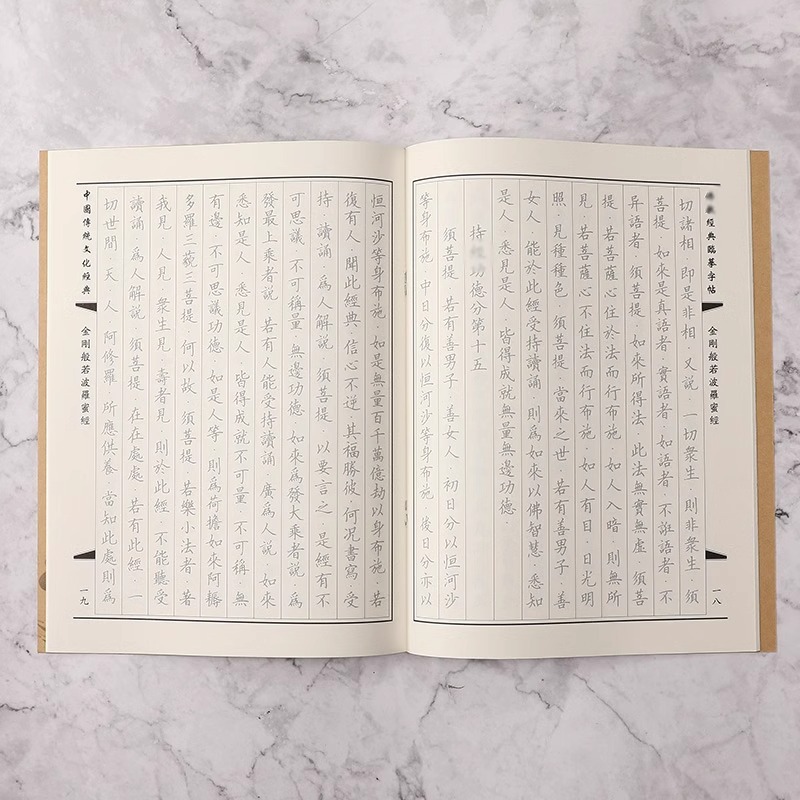 經典臨摹字帖
金剛般若波羅蜜經
一八
切諸相·即是非相·又說·一切衆生·則非衆生·須
菩提·如來是真語者·實語者·如語者·不誑語者·不
異語者·須菩提·如來所得法·此法無實無虛·須菩
提·若菩薩心住於法而行布施·如人入暗·則無所
見·若菩薩心不住法而行布施·如人有目·日光明
照·見種種色·須菩提·當來之世·若有善男子·善
女人·能於此經受持讀誦·則爲如來以佛智慧·悉知
是人·悉見是人·皆得成就無量無邊功德
持功德分第十五
須菩提·若有善男子·善女人·初日分以恒河沙
等身布施·中日分復以恒河沙等身布施·後日分亦以
恒河沙等身布施·如是無量百千萬億劫以身布施·若
復有人·聞此經典·信心不逆·其福勝彼·何况書寫·受
持·讀誦·爲人解説·須菩提·以要言之·是經有不
可思議·不可稱量·無邊功德·如來爲發大乘者說·爲
發最上乘者説·若有人能受持讀誦·廣爲人説·如來
悉知是人·悉見是人·皆得成就不可量·不可稱·無
有邊·不可思議功德·如是人等·則爲荷擔如來阿耨
多羅三藐三菩提·何以故·須菩提·若樂小法者·著
我見·人見·衆生見·壽者見·則於此經·不能聽受
讀誦·爲人解説·須菩提·在在處處·若有此經·一
切世間·天·人·阿修羅·所應供養·當知此處·則爲
中國傳統文化經典
金剛般若波羅蜜經
一九